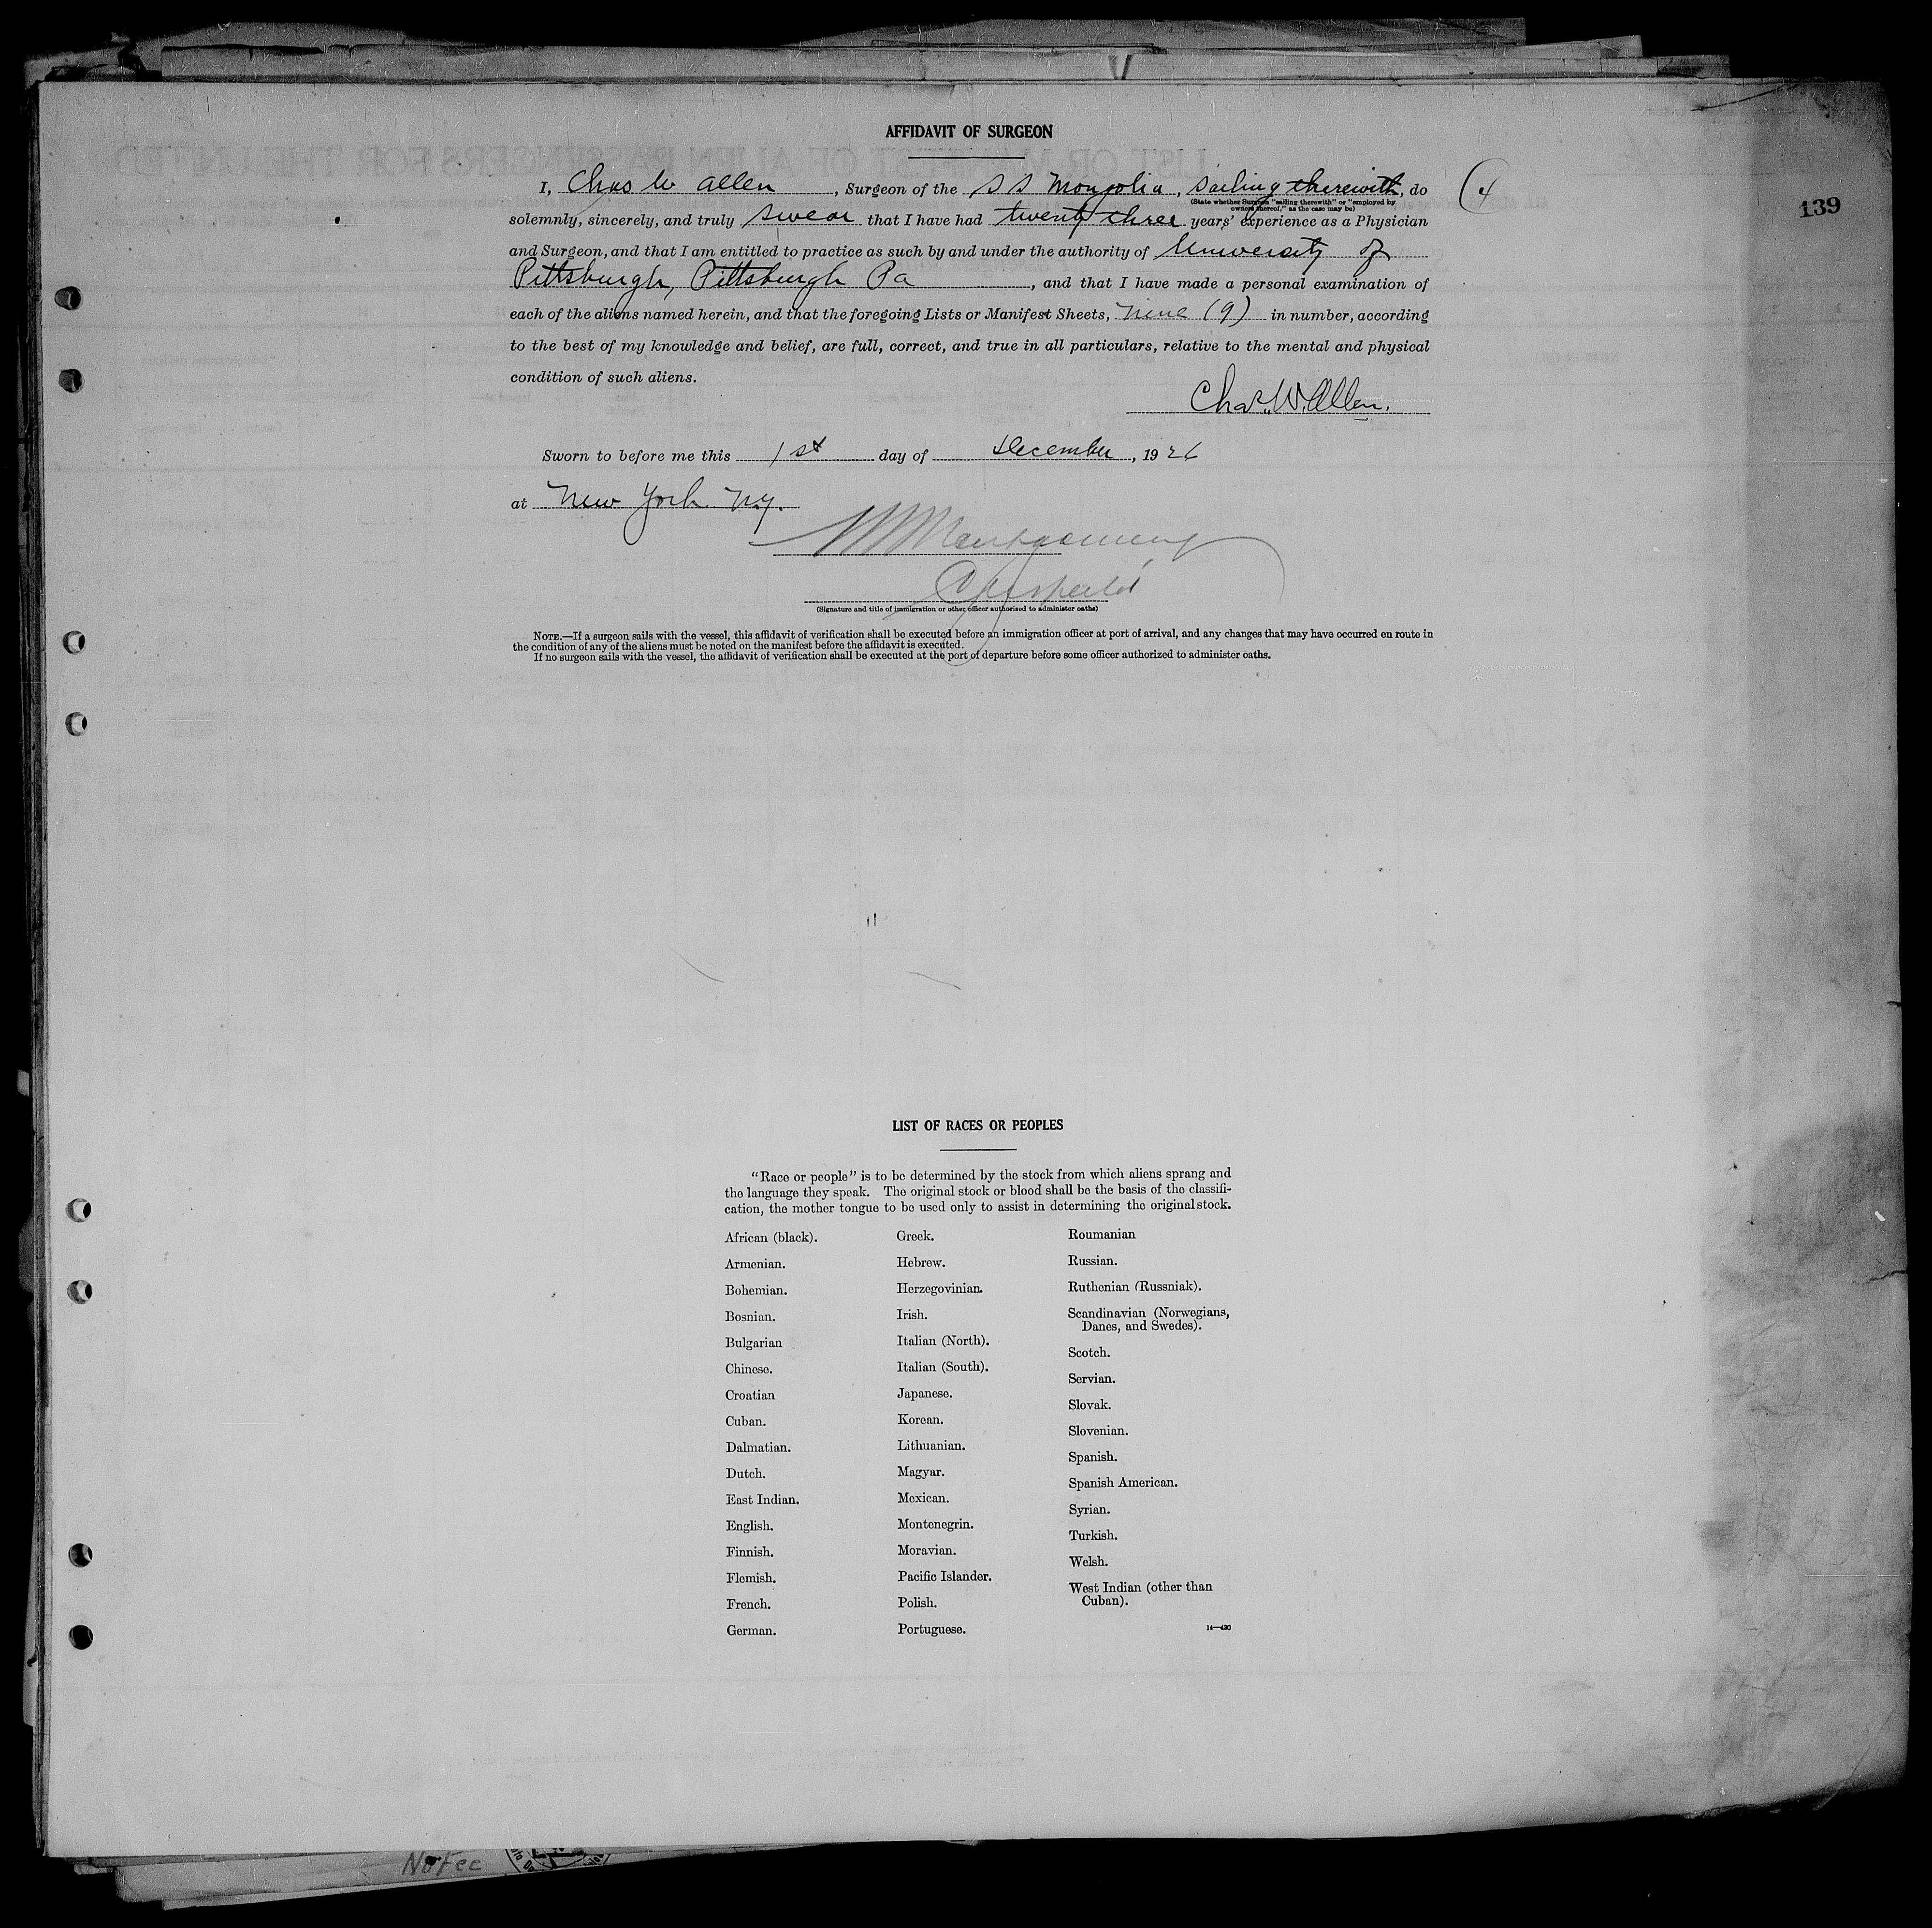 AFFIDAVIT OF SURGEON
I, Chas W Allen, Surgeon of the S S Mongolia, sailing therewith, do
(State whether Surgeon "sailing therewith" or "employed by
owners thereof," as the case may be)
(4
139
solemnly, sincerely, and truly swear that I have had twenty three years' experience as a Physician
and Surgeon, and that I am entitled to practice as such by and under the authority of University of
Pittsburgh, Pittsburgh Pa, and that I have made a personal examination of
each of the aliens named herein, and that the foregoing Lists or Manifest Sheets, nine (9) in number, according
to the best of my knowledge and belief, are full, correct, and true in all particulars, relative to the mental and physical
condition of such aliens.
Chas. W. Allen.
Sworn to before me this 1st day of December, 1926
at New York N.Y.
Montgomery
(Signature and title of immigration or other officer authorized to administer oaths)
NOTE.—If a surgeon sails with the vessel, this affidavit of verification shall be executed before an immigration officer at port of arrival, and any changes that may have occurred en route in
the condition of any of the aliens must be noted on the manifest before the affidavit is executed.
If no surgeon sails with the vessel, the affidavit of verification shall be executed at the port of departure before some officer authorized to administer oaths.
LIST OF RACES OR PEOPLES
"Race or people" is to be determined by the stock from which aliens sprang and
the language they speak. The original stock or blood shall be the basis of the classifi-
cation, the mother tongue to be used only to assist in determining the original stock.
African (black).
Armenian.
Bohemian.
Bosnian.
Bulgarian
Chinese.
Croatian
Cuban.
Dalmatian.
Dutch.
East Indian.
English.
Finnish.
Flemish.
French.
German.
Greek.
Hebrew.
Herzegovinian.
Irish.
Italian (North).
Italian (South).
Japanese.
Korean.
Lithuanian.
Magyar.
Mexican.
Montenegrin.
Moravian.
Pacific Islander.
Polish.
Portuguese.
Roumanian
Russian.
Ruthenian (Russniak).
Scandinavian (Norwegians,
Danes, and Swedes).
Scotch.
Servian.
Slovak.
Slovenian.
Spanish.
Spanish American.
Syrian.
Turkish.
Welsh.
West Indian (other than
Cuban).
14—430
No Fee